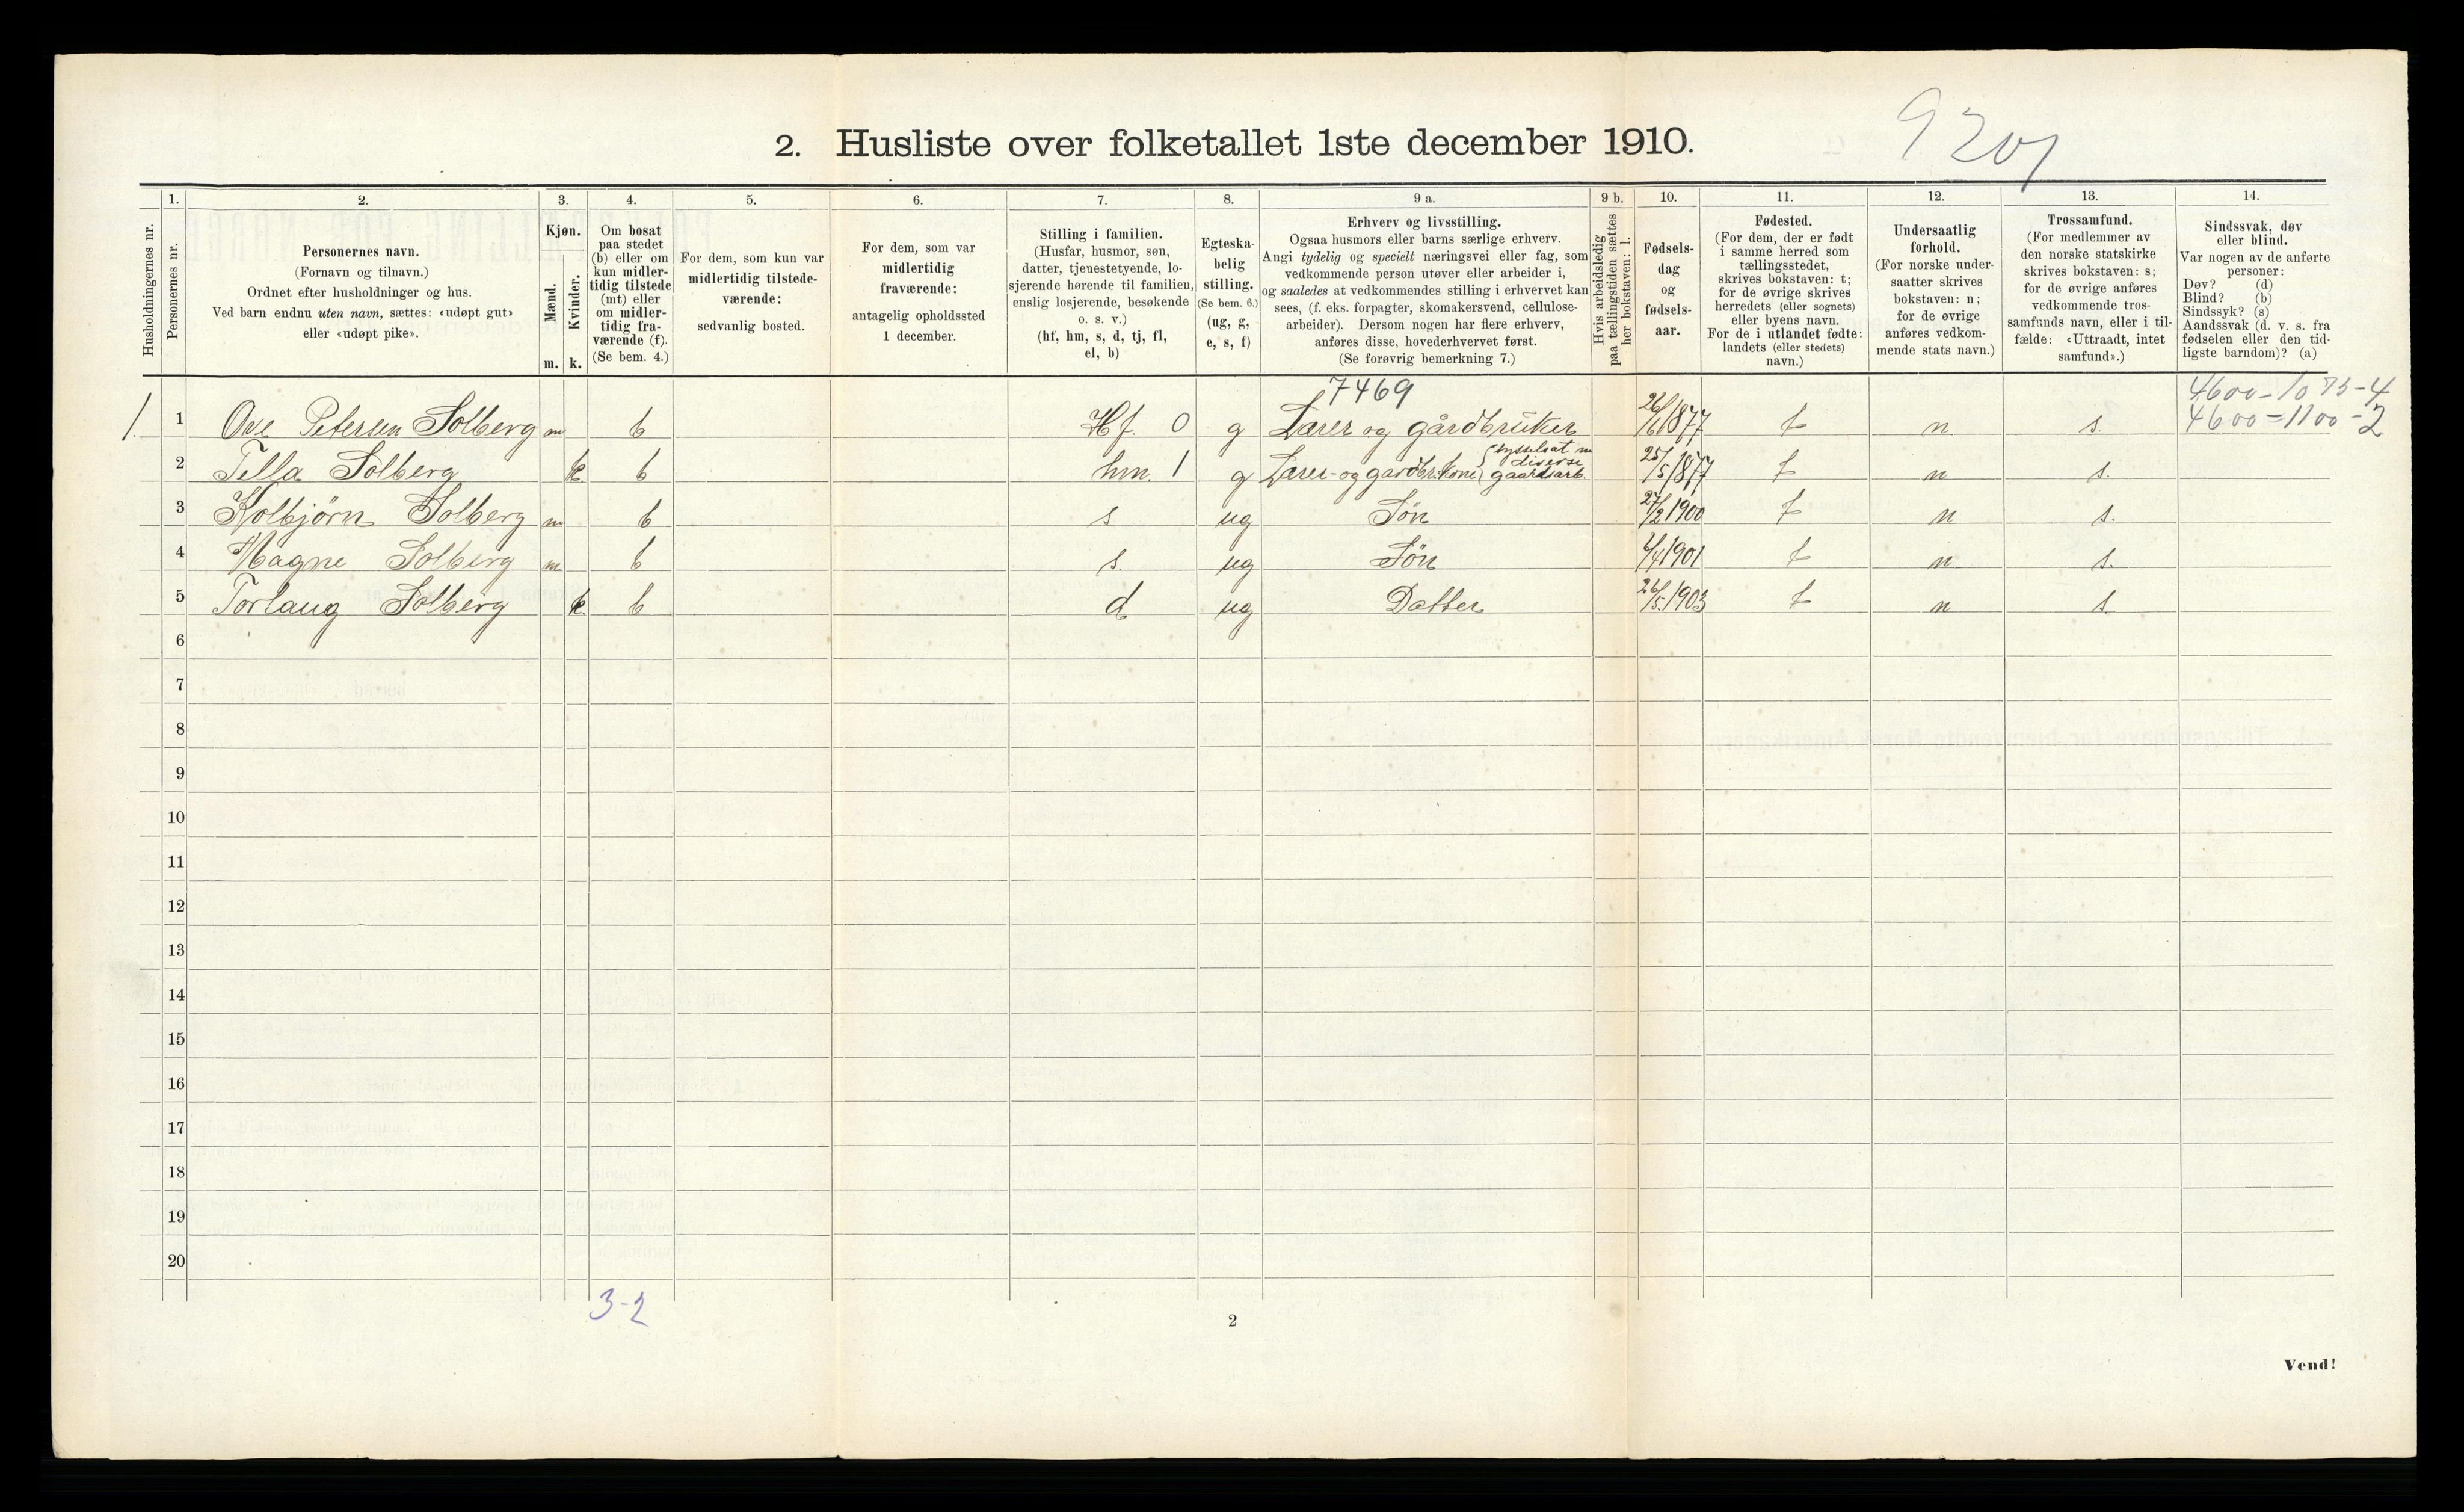 9201
2. Husliste over folketallet 1ste december 1910.
1. 2. 3. 4. 5. 6. 7. 8. 9 a. 9 b. 10. 11. 12. 13. 14.
Husholdningernes nr.
Personernes nr.
Personernes navn.
(Fornavn og tilnavn.)
Ordnet efter husholdninger og hus.
Ved barn endnu uten navn, sættes: «udøpt gut»
eller «udøpt pike».
Kjøn.
Mænd.
Kvinder.
m. k.
Om bosat
paa stedet
(b) eller om
kun midler-
tidig tilstede
(mt) eller
om midler-
tidig fra-
værende (f).
(Se bem. 4.)
For dem, som kun var
midlertidig tilstede-
værende:
sedvanlig bosted.
For dem, som var
midlertidig
fraværende:
antagelig opholdssted
1 december.
Stilling i familien.
(Husfar, husmor, søn,
datter, tjenestetyende, lo-
sjerende hørende til familien,
enslig losjerende, besøkende
o. s. v.)
(hf, hm, s, d, tj, fl,
el, b)
Egteska-
belig
stilling.
(Se bem. 6.)
(ug, g,
e, s, f)
Erhverv og livsstilling.
Ogsaa husmors eller barns særlige erhverv.
Angi tydelig og specielt næringsvei eller fag, som
vedkommende person utøver eller arbeider i,
og saaledes at vedkommendes stilling i erhvervet kan
sees, (f. eks. forpagter, skomakersvend, cellulose-
arbeider). Dersom nogen har flere erhverv,
anføres disse, hovederhvervet først.
(Se forøvrig bemerkning 7.)
Hvis arbeidsledig
paa tællingstiden sættes
her bokstaven: l.
Fødsels-
dag
og
fødsels-
aar.
Fødested.
(For dem, der er født
i samme herred som
tællingsstedet,
skrives bokstaven: t;
for de øvrige skrives
herredets (eller sognets)
eller byens navn.
For de i utlandet fødte:
landets (eller stedets)
navn.)
Undersaatlig
forhold.
(For norske under-
saatter skrives
bokstaven: n;
for de øvrige
anføres vedkom-
mende stats navn.)
Trossamfund.
(For medlemmer av
den norske statskirke
skrives bokstaven: s;
for de øvrige anføres
vedkommende tros-
samfunds navn, eller i til-
fælde: «Uttraadt, intet
samfund».)
Sindssvak, døv
eller blind.
Var nogen av de anførte
personer:
Døv? (d)
Blind? (b)
Sindssyk? (s)
Aandssvak (d. v. s. fra
fødselen eller den tid-
ligste barndom)? (a)
7469
4600-1075-4
4600-1100-2
1. 1 Ove Petersen Solberg m b Hf. 0 g Lærer og gårdbruker 26/6 1877 t n s.
2 Tella Solberg k b hm. 1 g Lærer- og gardbr.kone sysselsat m diverse gaardsarb. 25/5 1877 t n s.
3 Kolbjörn Solberg m b s ug Søn 27/2 1900 t n s.
4 Magne Solberg m b s. ug Søn 1901 t n s.
5 Torlaug Solberg k b d ug Datter 26/5 1903 t n s.
6
7
8
9
10
11
12
13
14
15
16
17
18
19
20
3-2
2
Vend!